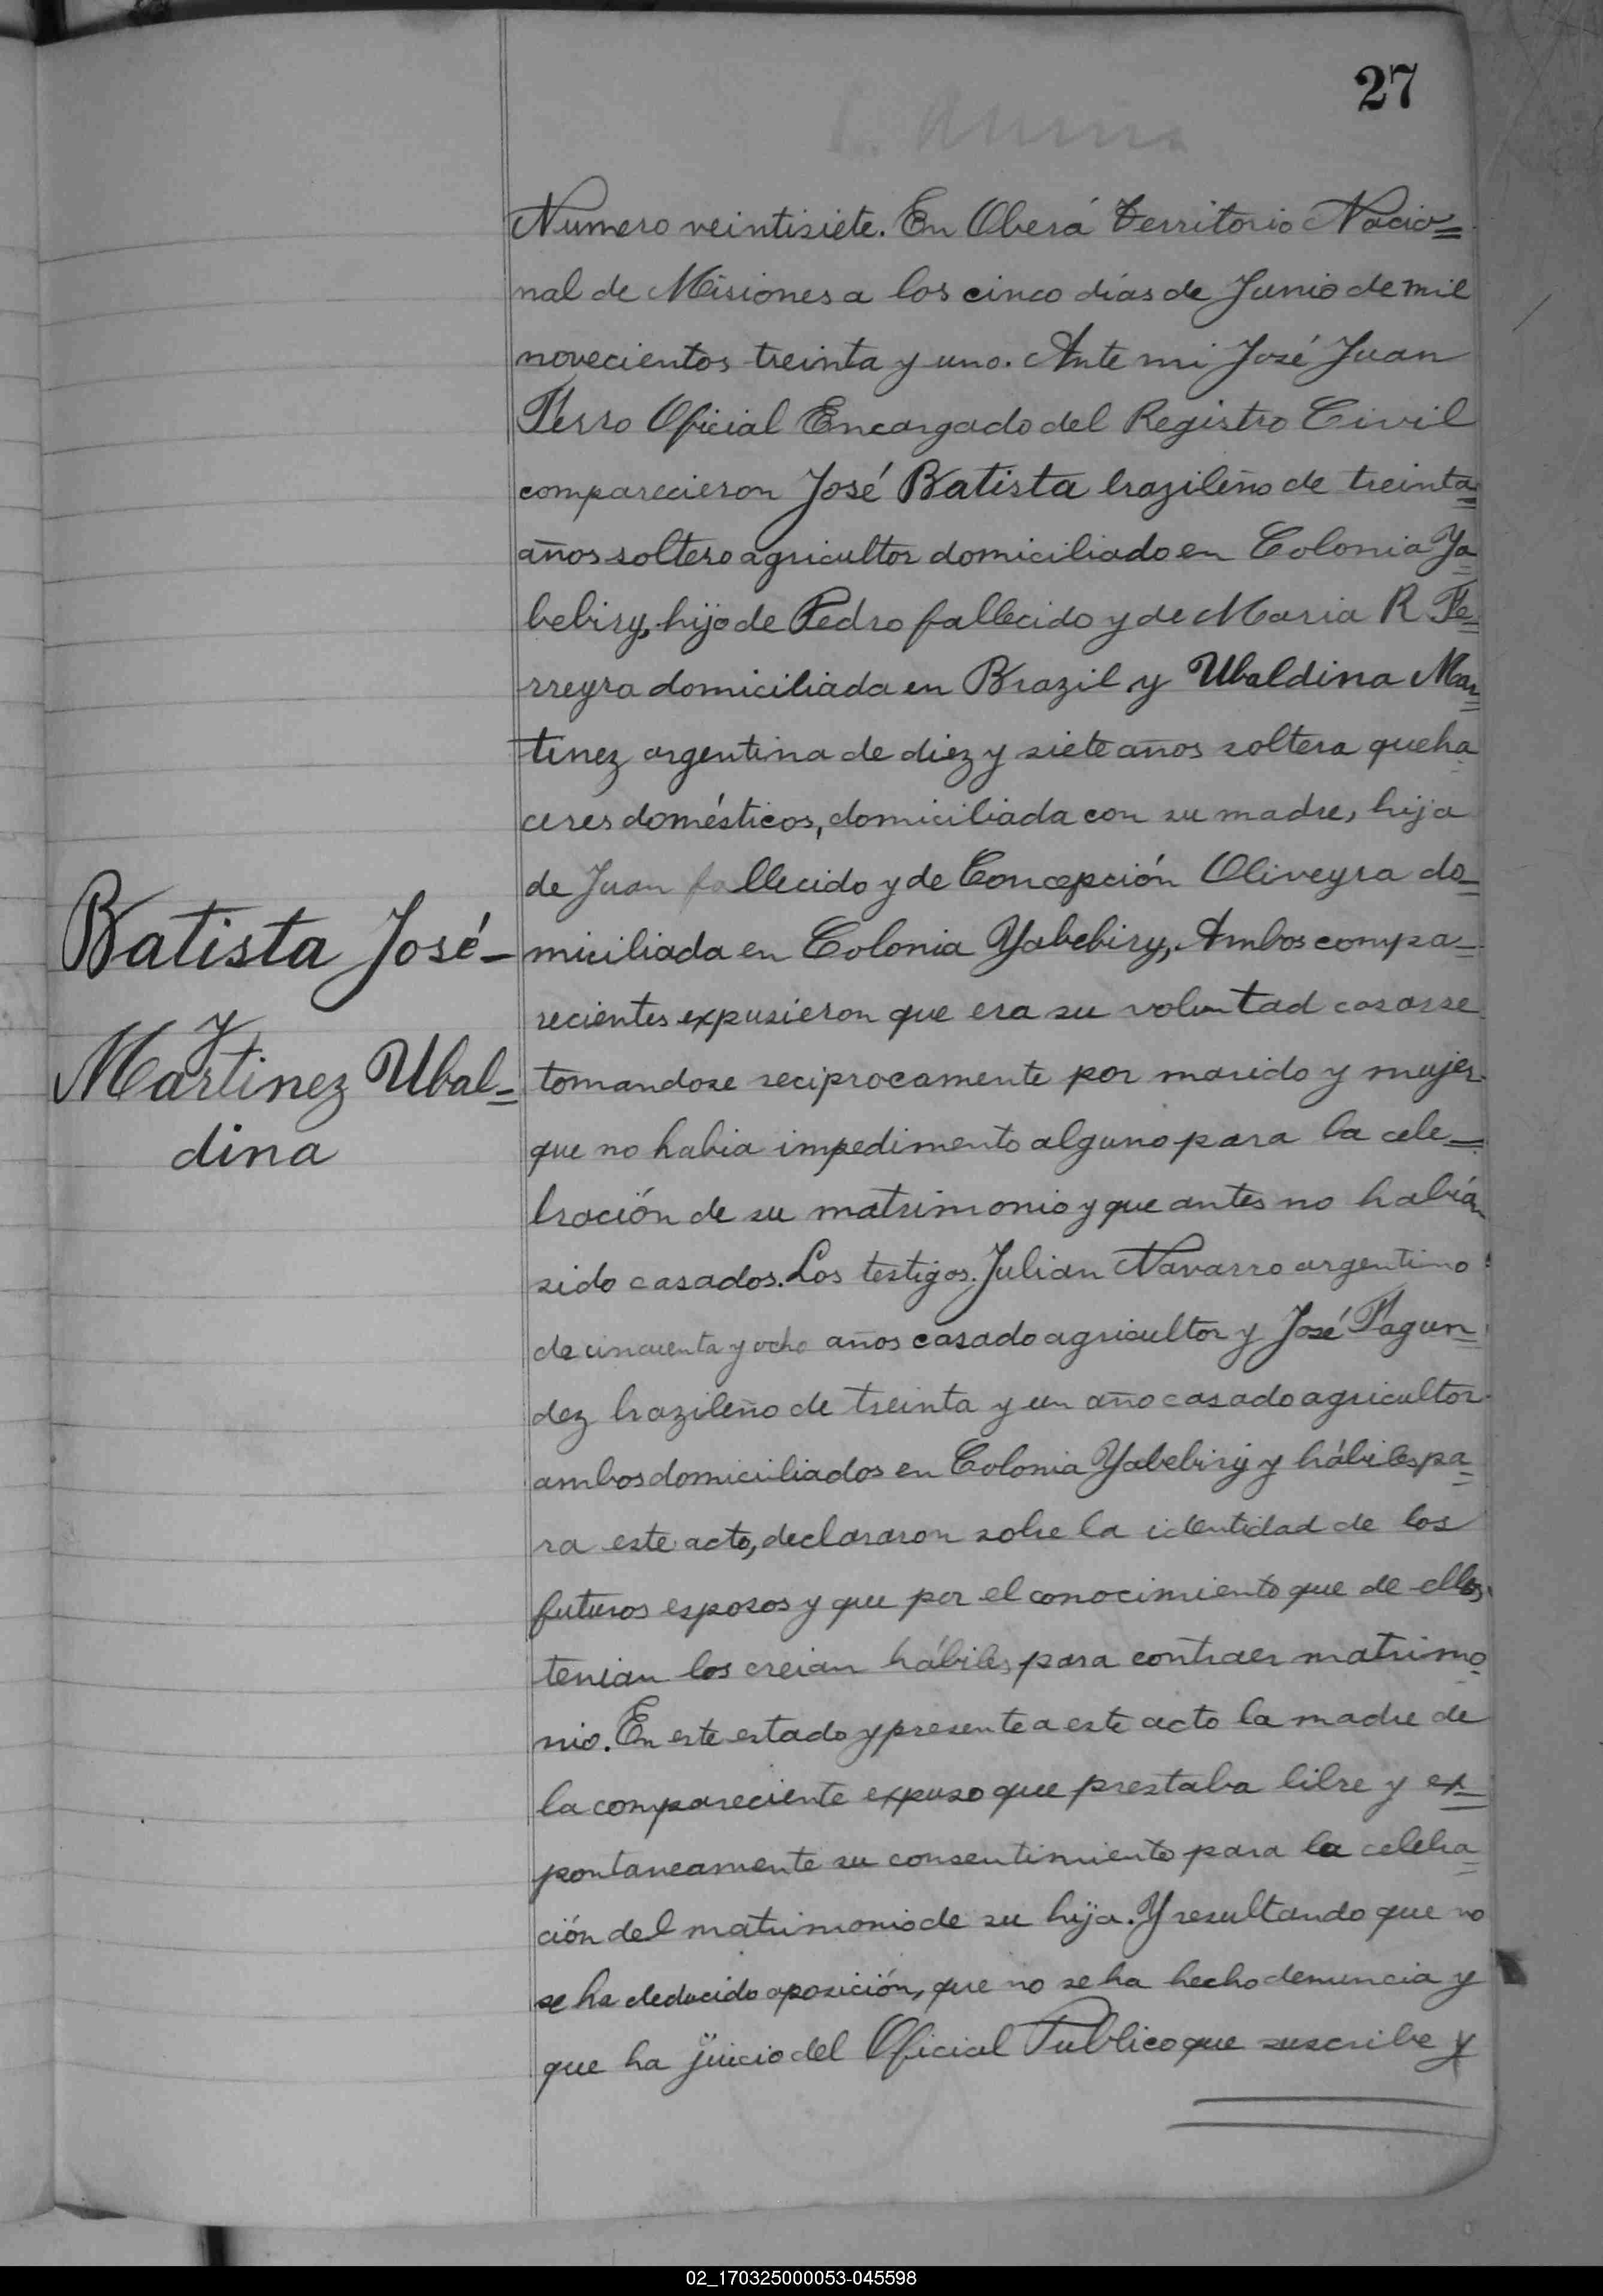 27
Numero veintisiete. En Oberá Territorio Nacio=
nal de Misiones a los cinco días de Junio de mil
novecientos treinta y uno. Ante mi José Juan
Ferro Oficial Encargado del Registro Civil
comparecieron José Batista brazileño de treinta
años soltero agricultor domiciliado en Colonia Ya=
bebiry, hijo de Pedro fallecido y de Maria R Fe=
rreyra domiciliada en Brazil y Ubaldina Mar=
tinez argentina de diez y siete años soltera queha
ceres domésticos, domiciliada con su madre, hija
de Juan fallecido y de Concepción Oliveyra do=
Batista José - miciliada en Colonia Yabebiry, Ambos compa=
y
recientes expusieron que era su voluntad casarse
Martinez Ubal= tomandose reciprocamente por marido y mujer
dina
que no habia impedimento alguno para la cele=
bración de su matrimonio y que antes no habían
sido casados. Los testigos. Julian Navarro argentino
de cincuenta y ocho años casado agricultor y José Fagun=
dez brazileño de treinta y un año casado agricultor
ambos domiciliados en Colonia Yabebiry y hábiles pa=
ra este acto, declararon sobre la identidad de los
futuros esposos y que por el conocimiento que de ellos
tenian los creian hábiles para contraer matrimo=
nio. En este estado y presente a este acto la madre de
la compareciente expuso que prestaba libre y ex=
pontaneamente su consentimiento para la celebra=
ción del matrimonio de su hija. Y resultando que no
se ha deducido oposición, que no se ha hecho denuncia y
que ha juicio del Oficial Publico que suscribe y
02_170325000053-045598